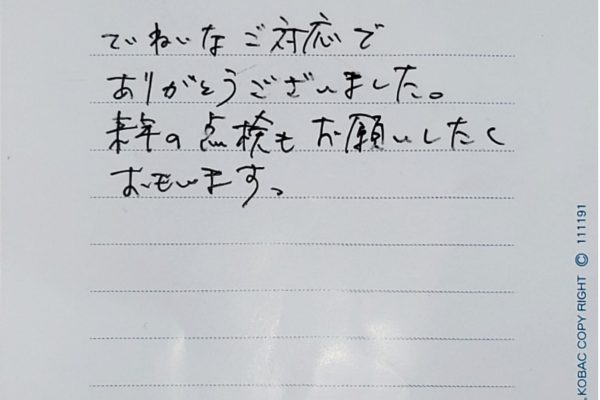 ていねいなご対応で
ありがとうございました。
来年の点検もお願いしたく
おもいます。
KOBAC COPY RIGHT © 111191